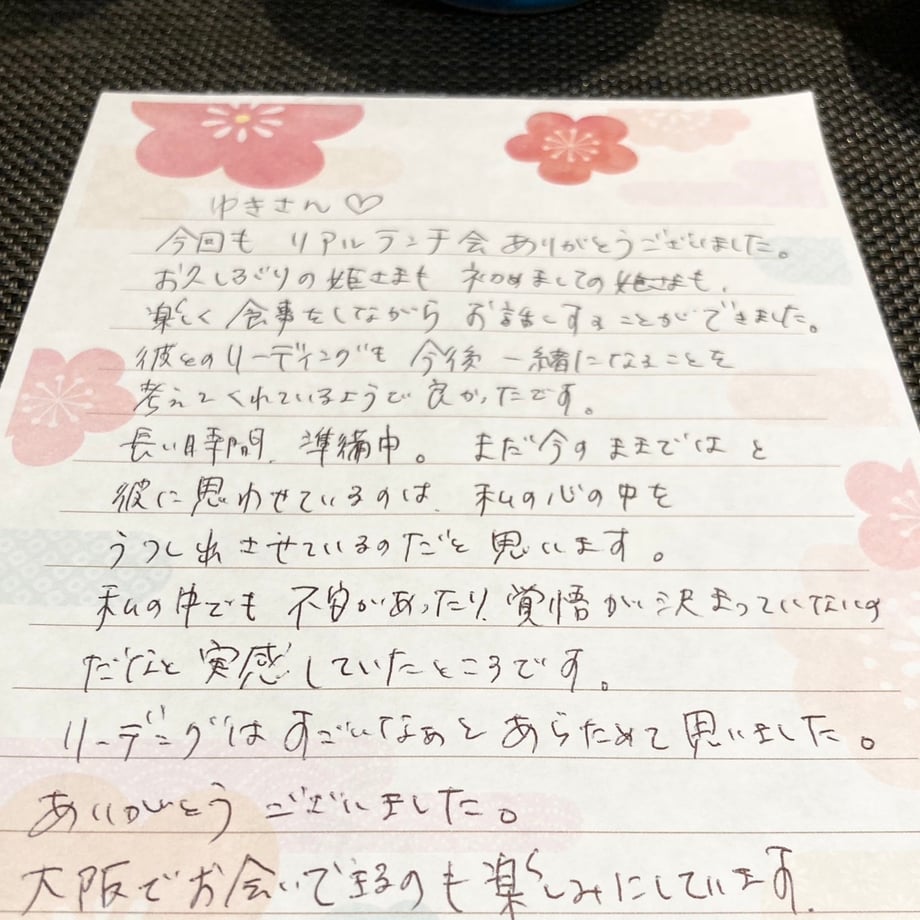 ゆきさん♡
今回も リアルランチ会 ありがとうございました。
お久しぶりの姫さまも 初めましての姫さまも、
楽しく 食事をしながら お話しすることができました。
彼とのリーディングも 今後 一緒になることを
考えてくれているようで良かったです。
長い時間、準備中。 まだ今のままではと
彼に思わせているのは、私の心の中を
うつし出させているのだと思います。
私の中でも 不安があったり、覚悟が決まっていないの
だなと実感していたところです。
リーディングはすごいなぁとあらためて思いました。
ありがとうございました。
大阪でお会いできるのも楽しみにしています。